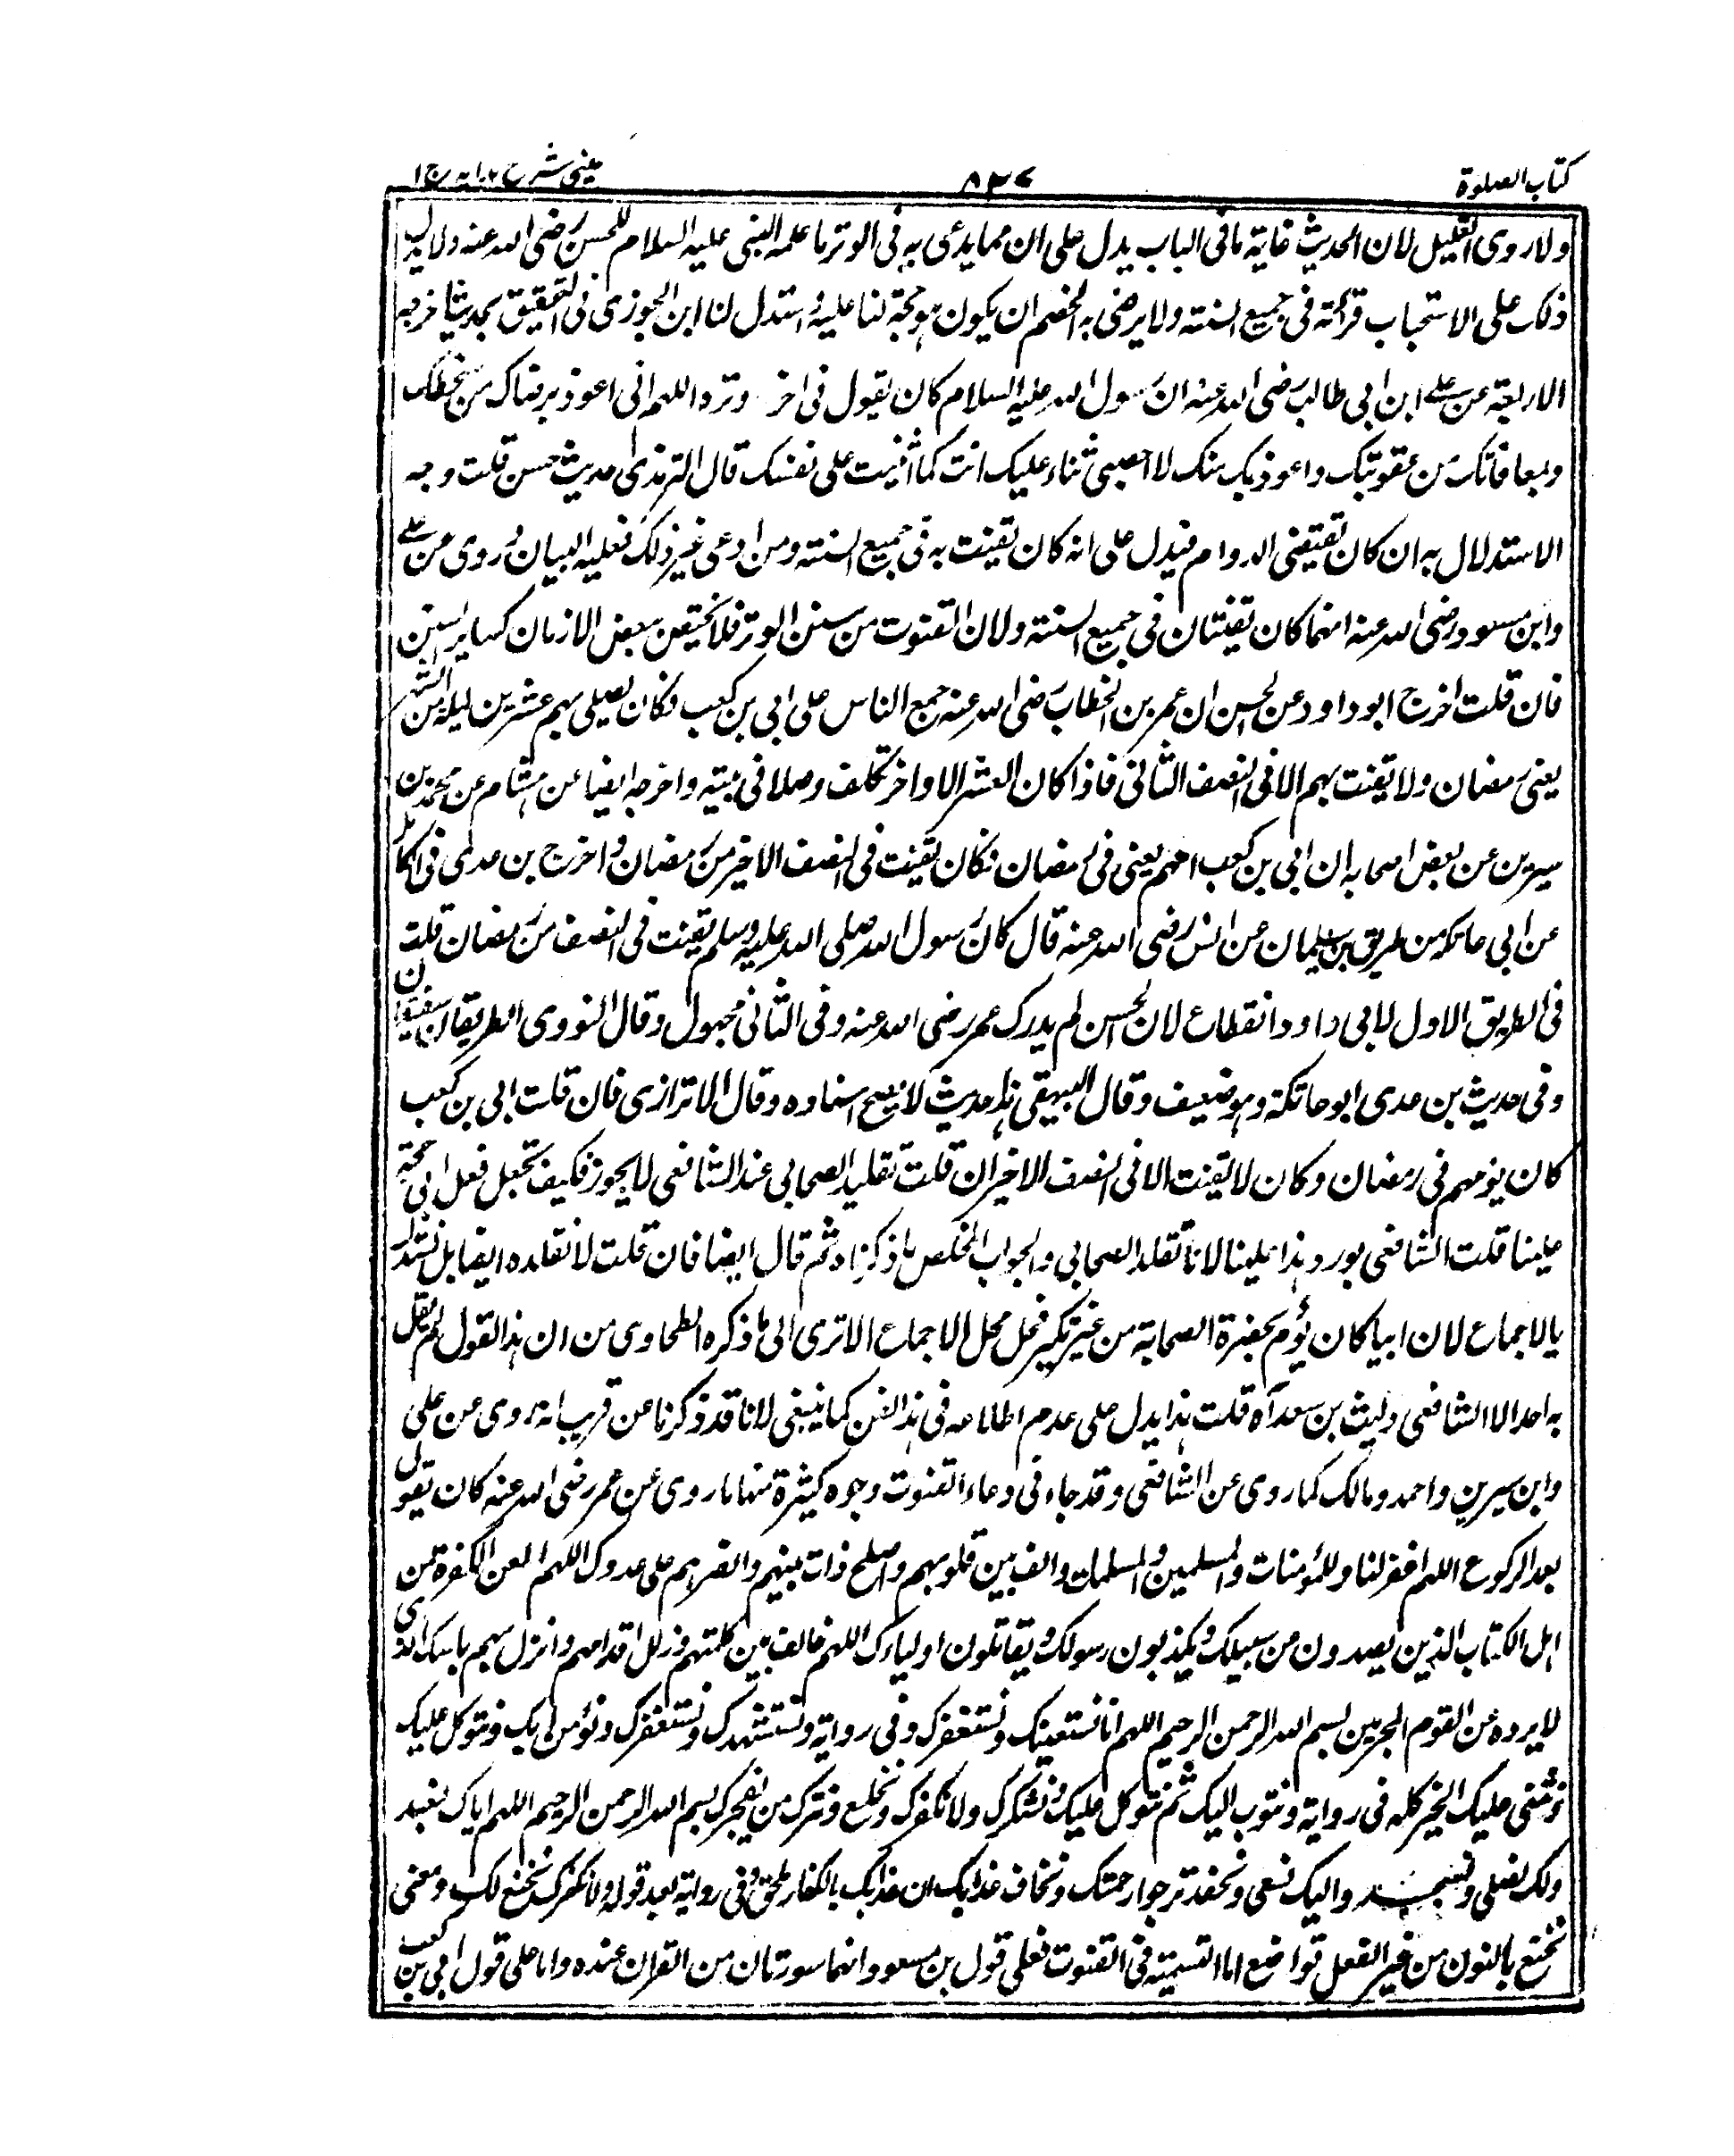 كتاب الصلوة
٨٢٧
عينى شرح هدايه ج ١
ولا روى التعليل لان الحديث غاية ما فى الباب يدل على ان مما يدعى به فى الوتر ما علمه النبى عليه السلام للحسن رضى الله عنه ولا يدل
ذلك على الاستحباب قرائته فى جميع السنته ولا يرضى به الخصم ان يكون هو حجة لنا عليه واستدل لنا ابن الجوزى فى التحقيق بحديث اخرجه
الاربعة عن على ابن ابى طالب رضى الله عنه ان رسول الله عليه السلام كان يقول فى اخر وتره اللهم انى اعوذ برضاك من سخطك
وبمعافاتك من عقوبتك واعوذ بك منك لا احصى ثناء عليك انت كما اثنيت على نفسك قال الترمذى حديث حسن قلت وجه
الاستدلال به ان كان تقيتضى الدوام فيدل على انه كان تقينت به فى جميع السنته ومن ادعى غير ذلك فعليه البيان وروى عن على
وابن مسعود رضى الله عنه انهما كان تقينتان فى جميع السنته ولان القنوت من سنن الوتر فلا يختص ببعض الازمان كسائر السنن
فان قلت اخرج ابو داود عن الحسن ان عمر بن الخطاب رضى الله عنه جمع الناس على ابى بن كعب فكان يصلى بهم عشرين ليلة من الشهر
يعنى رمضان ولا تقينت بهم الا فى النصف الثانى فاذا كان العشر الاواخر تخلف وصلا فى بيته واخرجه ايضا عن هشام عن محمد بن
سيرين عن بعض اصحابه ان ابى بن كعب امهم يعنى فى رمضان فكان يقينت فى النصف الاخير من رمضان واخرج بن عدى فى الكامل
عن ابى عاتكه من طريق بن سليمان عن انس رضى الله عنه قال كان رسول الله صلى الله عليه وسلم يقينت فى النصف من رمضان قلت
فى الطريق الاول لابى داود انقطاع لان الحسن لم يدرك عمر رضى الله عنه وفى الثانى مجهول وقال النووى الطريقان ضعيفان
وفى حديث بن عدى ابو عاتكة وهو ضعيف وقال البيهقى هذا حديث لا يصح اسناده وقال الاترازى فان قلت ابى بن كعب
كان يؤمهم فى رمضان وكان لا تقينت الا فى النصف الاخير ان قلت تقليد الصحابى عند الشافعى لا يجوز فكيف تجعل فعل ابى حجة
علينا قلت الشافعى يورد هذا علينا لانا نقلد الصحابى والجواب المخلص ما ذكرناه ثم قال ايضا فان قلت لا نقلده ايضا بل نستدل
بالاجماع لان ابيا كان يؤم بحضرة الصحابة من غير نكير فحل محل الاجماع الا ترى الى ما ذكره الطحاوى من ان هذا القول لم يقل
به احد الا الشافعى وليث بن سعد اه قلت هذا يدل على عدم اطلاعه فى هذا الفن كما ينبغى لانا قد ذكرنا عن قريب انه روى عن على
وابن سيرين واحمد ومالك كما روى عن الشافعى وقد جاء فى دعاء القنوت وجوه كثيرة منها ما روى عن عمر رضى الله عنه كان يقول
بعد الركوع اللهم اغفر لنا وللمؤمنات والمسلمين والمسلمات والف بين قلوبهم واصلح ذات بينهم وانصرهم على عدوك اللهم العن الكفرة من
اهل الكتاب الذين يصدون عن سبيلك ويكذبون رسولك ويقاتلون اولياءك اللهم خالف بين كلمتهم وزلزل اقدامهم وانزل بهم باسك الذى
لا يرده عن القوم المجرمين بسم الله الرحمن الرحيم اللهم انا نستعينك ونستغفرك وفى رواية ونستشهدك ونستغفرك ونؤمن بك ونتوكل عليك
ونثنى عليك الخير كله فى رواية ونتوب اليك ثم نتوكل عليك ونشكرك ولا نكفرك ونخلع ونترك من يفجرك بسم الله الرحمن الرحيم اللهم اياك نعبد
ولك نصلى ونسجد واليك نسعى ونحفد نرجوا رحمتك ونخاف عذابك ان عذابك بالكفار ملحق وفى رواية بعد قوله ولا نكفرك نخنع لك ومعنى
نخنع بالنون من غير الفعل تواضع اما التسمية فى القنوت فعلى قول بن مسعود انهما سورتان من القران عنده واما على قول ابى بن كعب